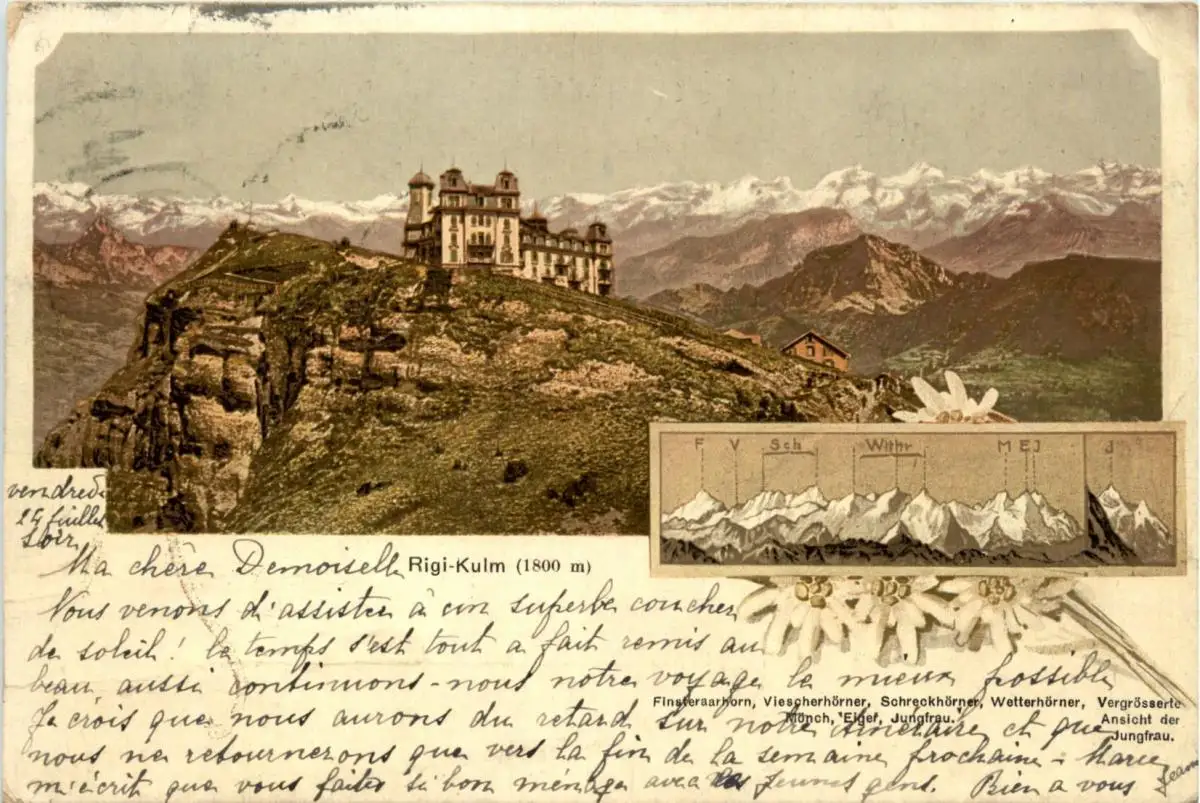 F V Sch Wtthr M E J J
vendredi
24 juillet
soir
Rigi-Kulm (1800 m)
Ma chère Demoiselle
Nous venons d'assister à un superbe coucher
de soleil! le temps s'est tout a fait remis au
beau, aussi continuons-nous notre voyage le mieux possible
Finsteraarhorn, Viescherhörner, Schreckhörner, Wetterhörner,
Mönch, Eiger, Jungfrau.
Vergrösserte
Ansicht der
Jungfrau.
Je crois que nous aurons du retard sur notre itinéraire et que
nous ne retournerons que vers la fin de la semaine prochaine - Marie
m'écrit que vous faites si bon ménage avec les jeunes gens. Bien a vous
Jeanne